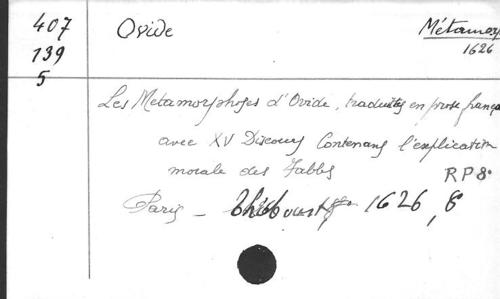 407 Ovide Métamor
139 1626
5
Les Métamorphoses d'Ovide, traduites en prose françai
avec XV Discours Contenans l'explication
morale des Fables
RP 8°
Paris - 1626, 8°